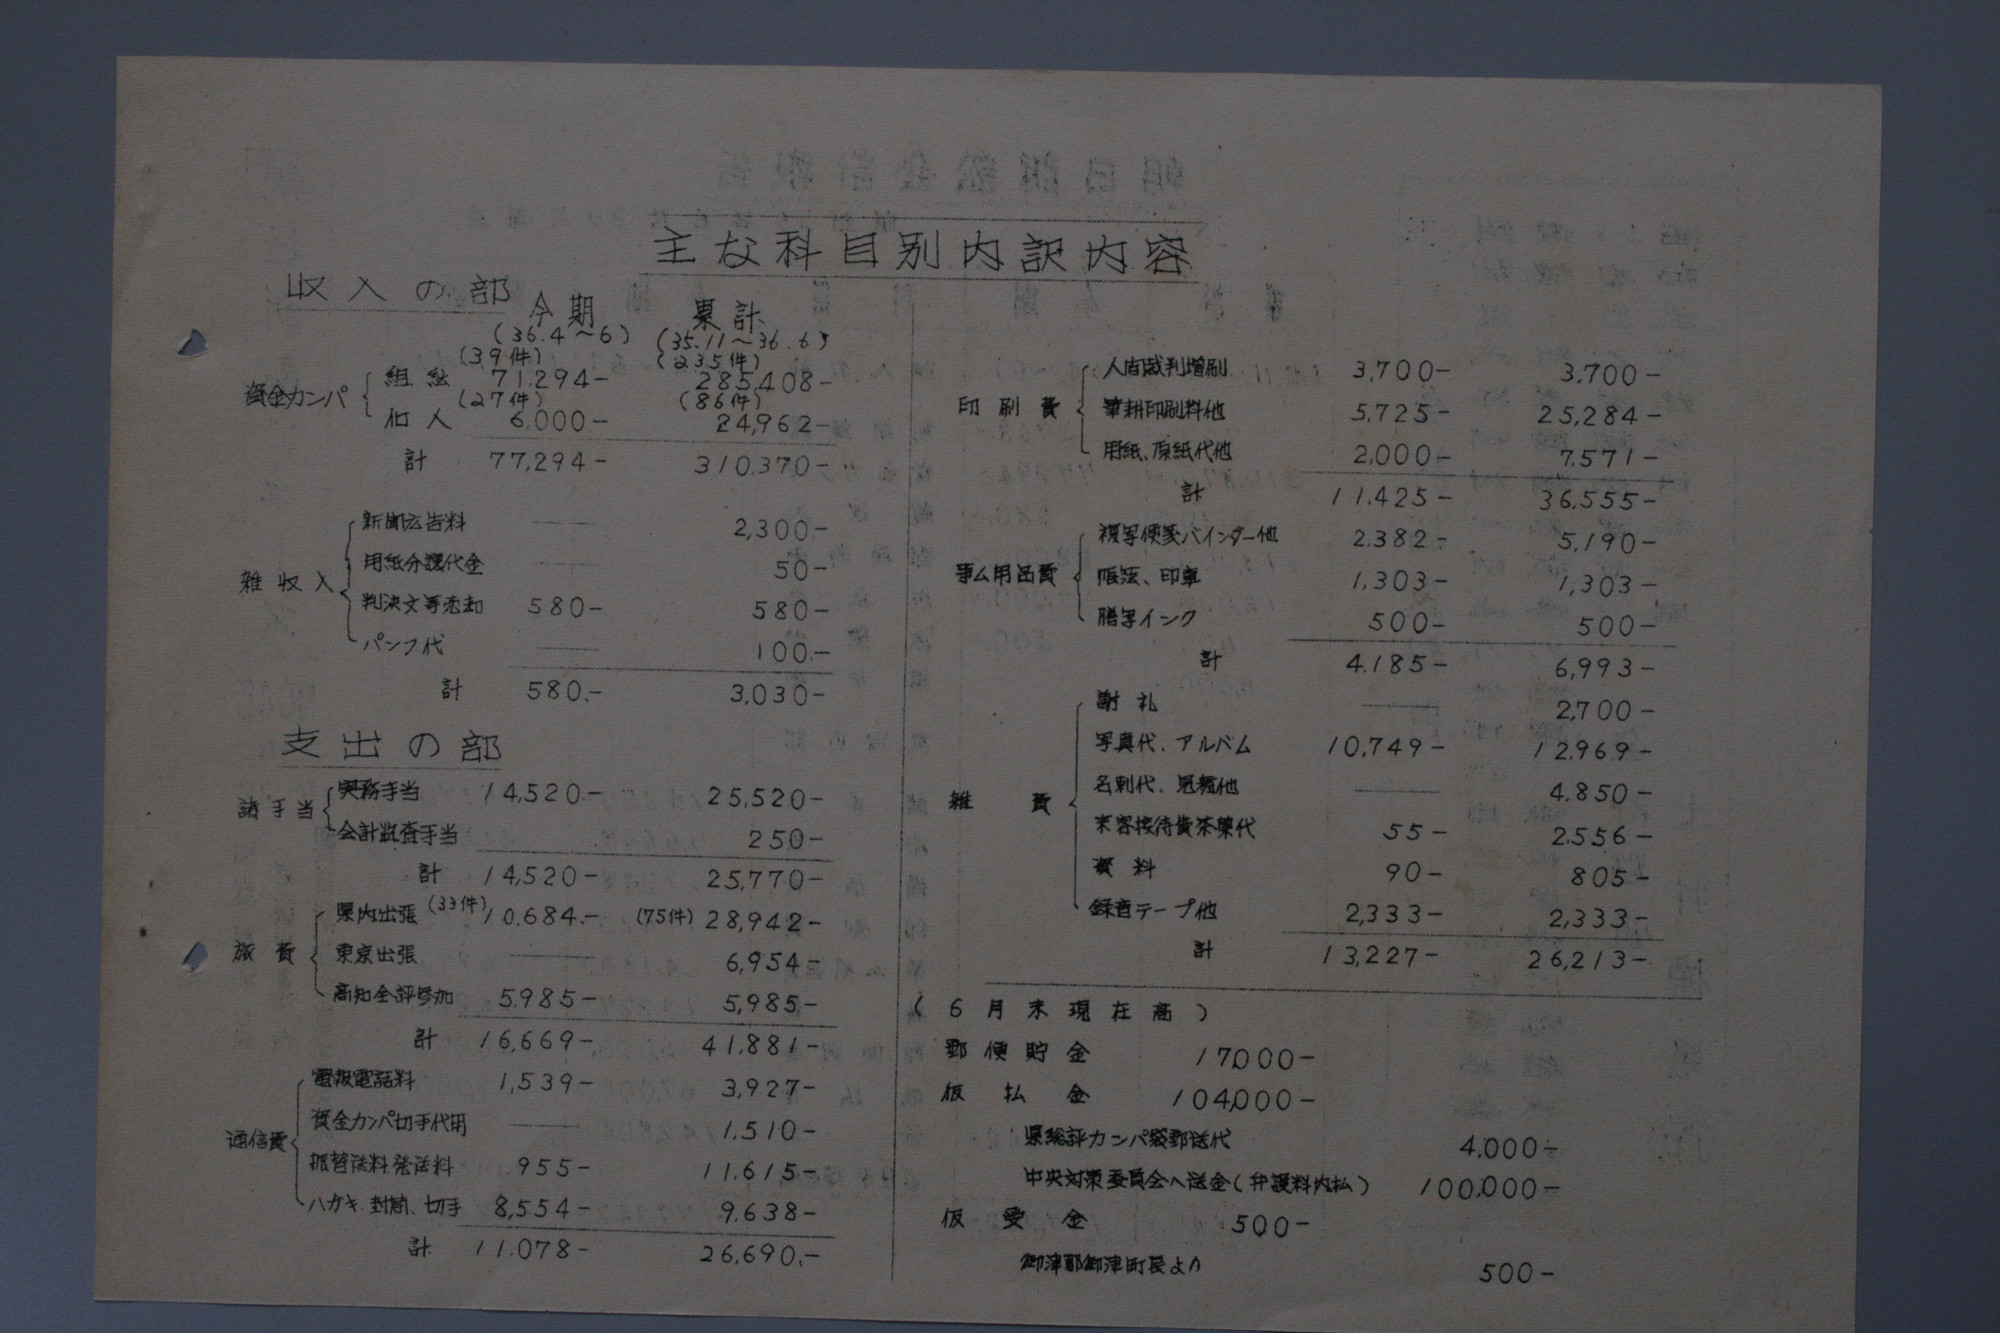 主な科目別内訳内容
収入の部
今期 累計
(36.4〜6) (35.11〜36.6)
(39件) (235件)
資金カンパ 組織 71,294- 285,408-
(27件) (86件)
個人 6,000- 24,962-
計 77,294- 310,370-
雑収入
新聞広告料 —— 2,300-
用紙分譲代金 —— 50-
判決文等売却 580- 580-
パンフ代 —— 100.-
計 580.- 3,030-
支出の部
諸手当
実務手当 14,520- 25,520-
会計監査手当 250-
計 14,520- 25,770-
旅費
県内出張 (33件) 10,684.- (75件) 28,942-
東京出張 —— 6,954-
高知全評参加 5,985- 5,985-
計 16,669- 41,881-
通信費
電報電話料 1,539- 3,927-
資金カンパ切手代用 —— 1,510-
振替送料発送料 955- 11,615-
ハガキ、封筒、切手 8,554- 9,638-
計 11,078- 26,690.-
印刷費
人間裁判増刷 3,700- 3,700-
筆耕印刷料他 5,725- 25,284-
用紙、原紙代他 2,000- 7,571-
計 11,425- 36,555-
事ム用品費
複写便箋バインダー他 2,382- 5,190-
帳簿、印章 1,303- 1,303-
謄写インク 500- 500-
計 4,185- 6,993-
雑費
謝礼 —— 2,700-
写真代、アルバム 10,749- 12,969-
名刺代、見舞他 —— 4,850-
来客接待費茶菓代 55- 2,556-
資料 90- 805-
録音テープ他 2,333- 2,333-
計 13,227- 26,213-
(6月末現在高)
郵便貯金 17,000-
仮払金 104,000-
県総評カンパ袋郵送代 4,000-
中央対策委員会へ送金(弁護料内払) 100,000-
仮受金 500-
御津郡御津町長より 500-